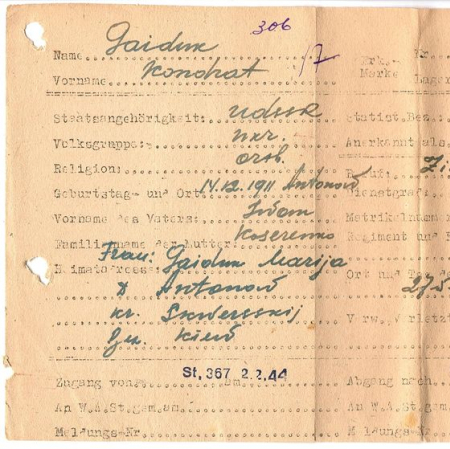 306
Name Gaiduk Erk.- Nr.
Vorname Kondrat /7 Marke Lager
Staatsangehörigkeit: UdSSR Statist.Bez.:
Volksgruppe: ukr. Anerkannt als
Religion: orth. Beruf: Zi
Geburtstag- und Ort 14.12.1911 Antonow Dienstgrad
Vorname des Vaters: Iwan Matrikelnummer
Familienname der Mutter: Koserenko Regiment und
Heimatadresse: Frau: Gaiduk Marija
D Antonow Ort und Tag de
Kr. Skwerskij 27.5
Gez. Kiew Verw. Verletz
St.367 2.2.44
Zugang von am Abgang nach
An W.A.St.gem.am An W.A.St.gem.
Meldungs-Nr. Meldungs-Nr.